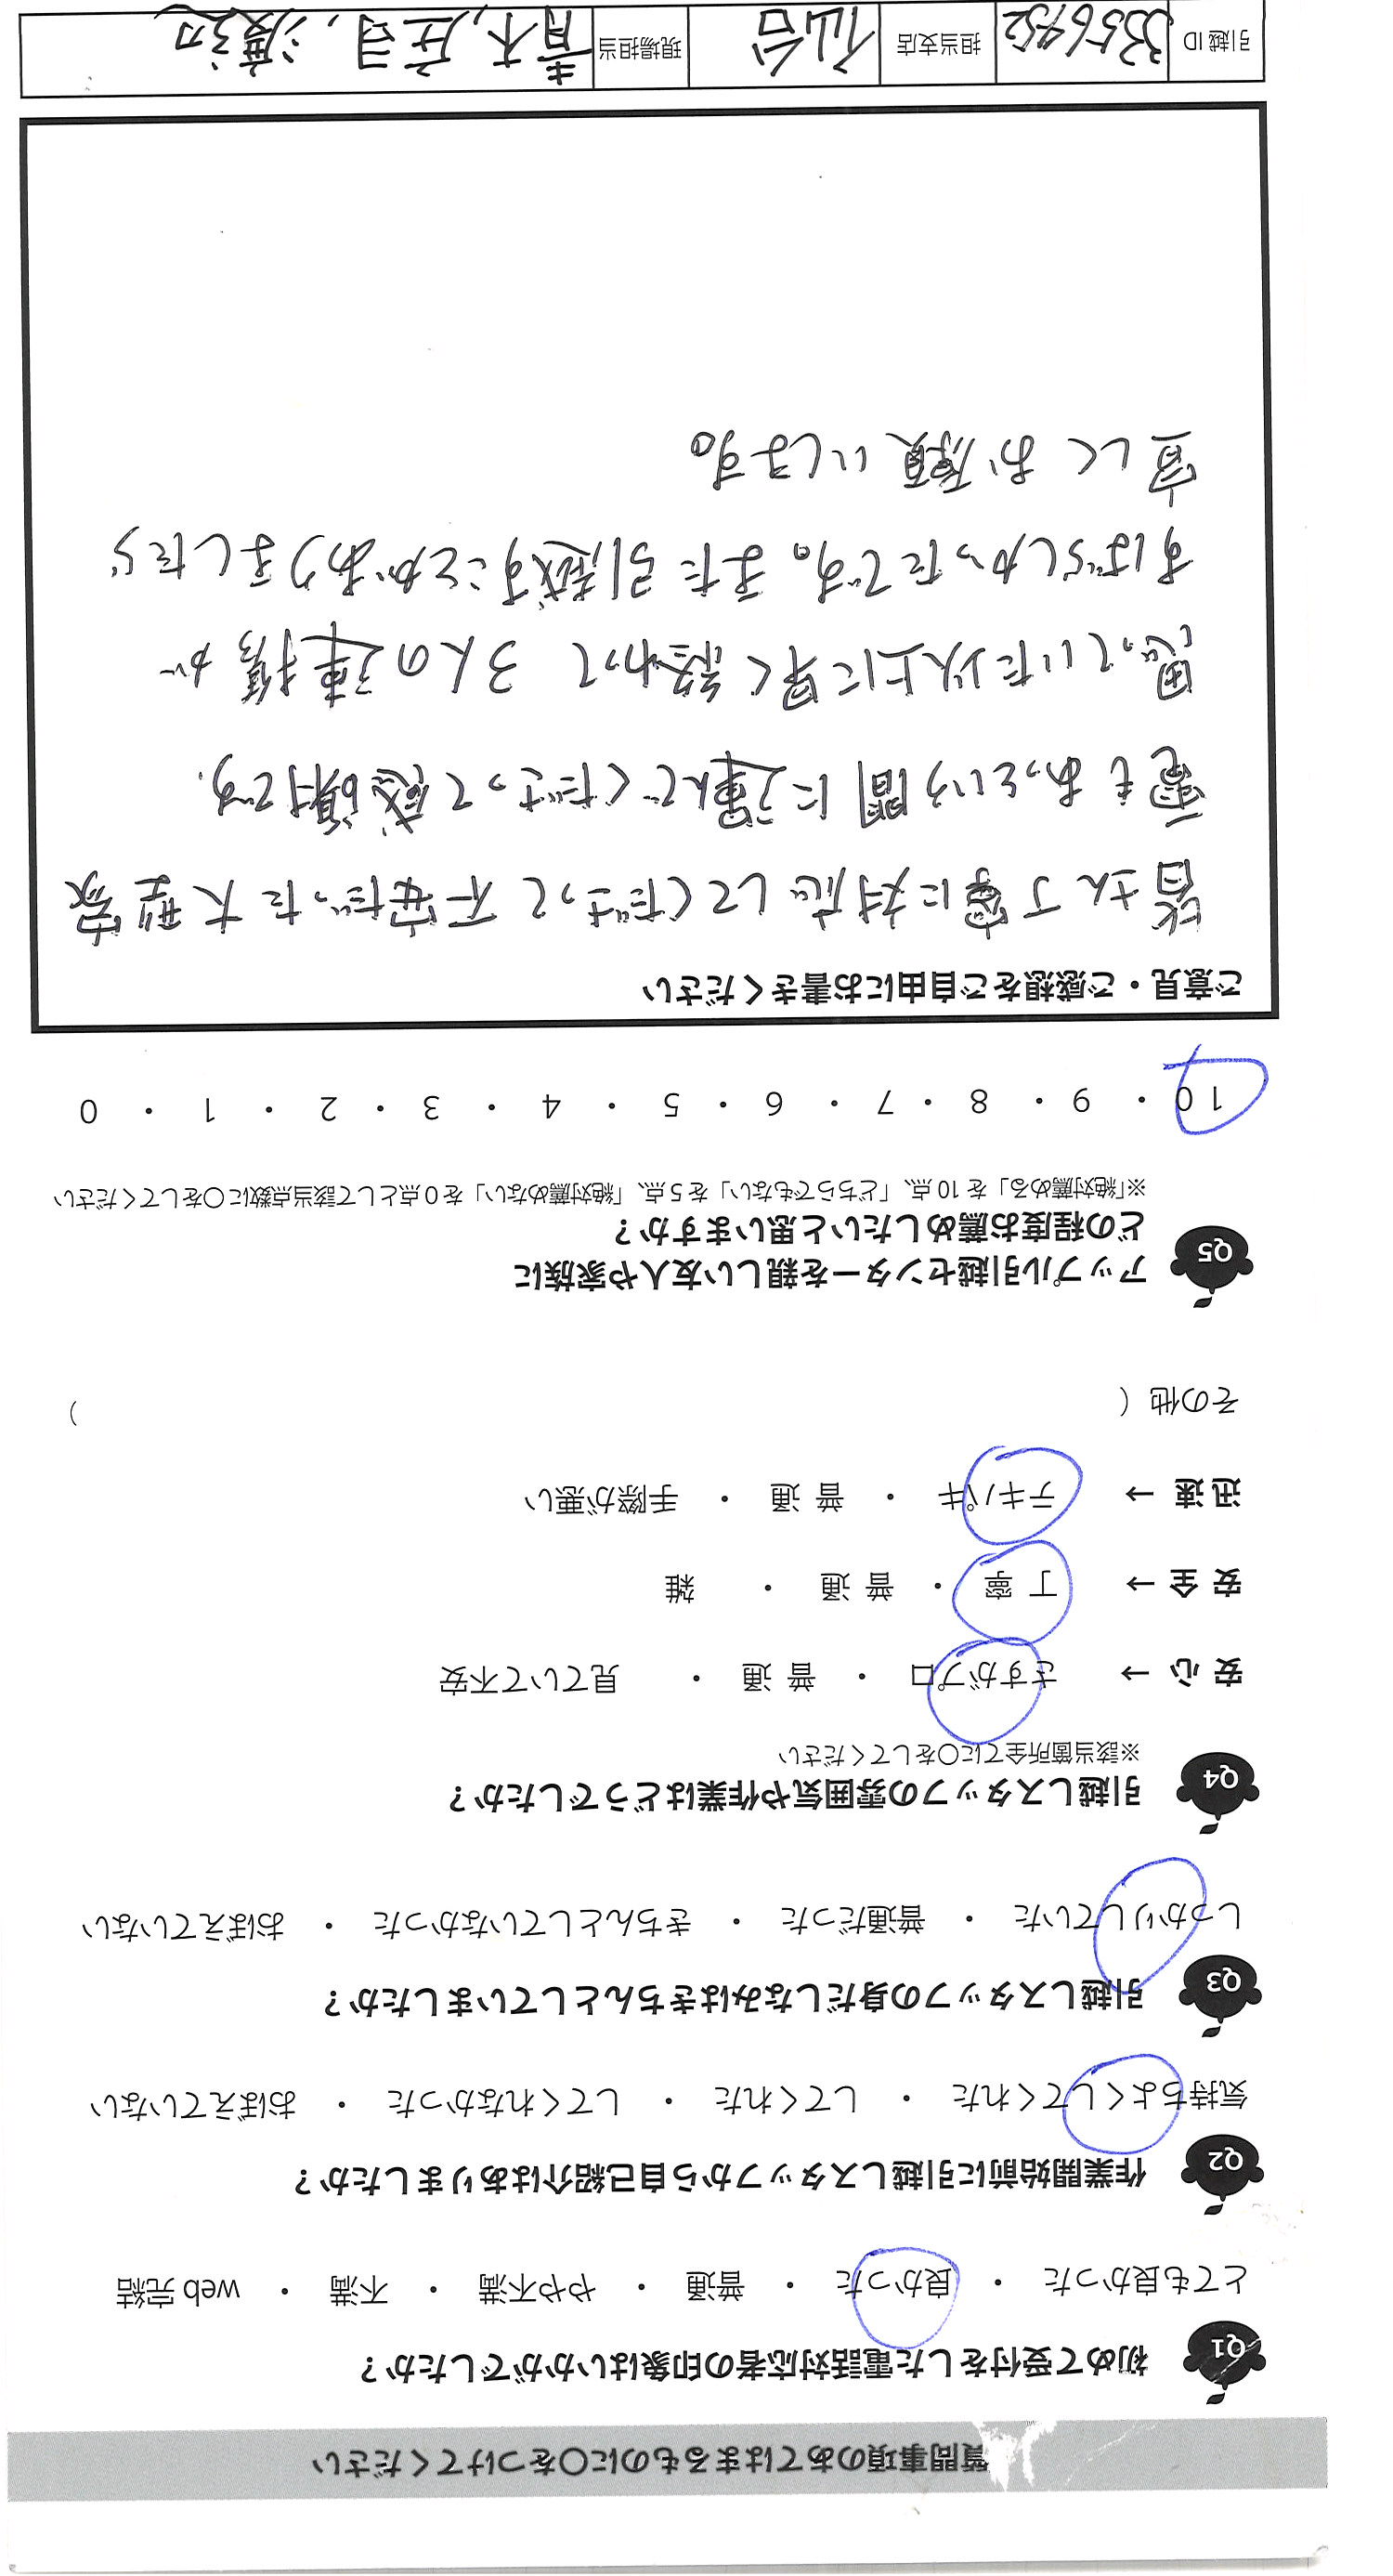 質問事項のあてはまるものに○をつけてください
Q1 初めて受付をした電話対応者の印象はいかがでしたか？
とても良かった ・ 良かった ・ 普通 ・ やや不満 ・ 不満 ・ web 完結
Q2 作業開始前に引越しスタッフから自己紹介はありましたか？
気持ちよくしてくれた ・ してくれた ・ してくれなかった ・ おぼえていない
Q3 引越しスタッフの身だしなみはきちんとしていましたか？
しっかりしていた ・ 普通だった ・ きちんとしていなかった ・ おぼえていない
Q4 引越しスタッフの雰囲気や作業はどうでしたか？
※該当箇所全てに○をしてください
安心 → さすがプロ ・ 普通 ・ 見ていて不安
安全 → 丁寧 ・ 普通 ・ 雑
迅速 → テキパキ ・ 普通 ・ 手際が悪い
その他（ ）
Q5 アップル引越センターを親しい友人や家族に
どの程度お薦めしたいと思いますか？
※「絶対薦める」を10点、「どちらでもない」を5点、「絶対薦めない」を0点として該当点数に○をしてください
10 ・ 9 ・ 8 ・ 7 ・ 6 ・ 5 ・ 4 ・ 3 ・ 2 ・ 1 ・ 0
ご意見・ご感想をご自由にお書きください
皆さん丁寧に対応してくださって不安だった大型家
電もあっという間に運んでくださって感謝です。
思っていた以上に早く終わって 3人の連携が
すばらしかったです。また引越すことがありましたら
宜しくお願いします。
引越ID 3356452 担当支店 仙台 現場担当 青木,庄司,渡辺